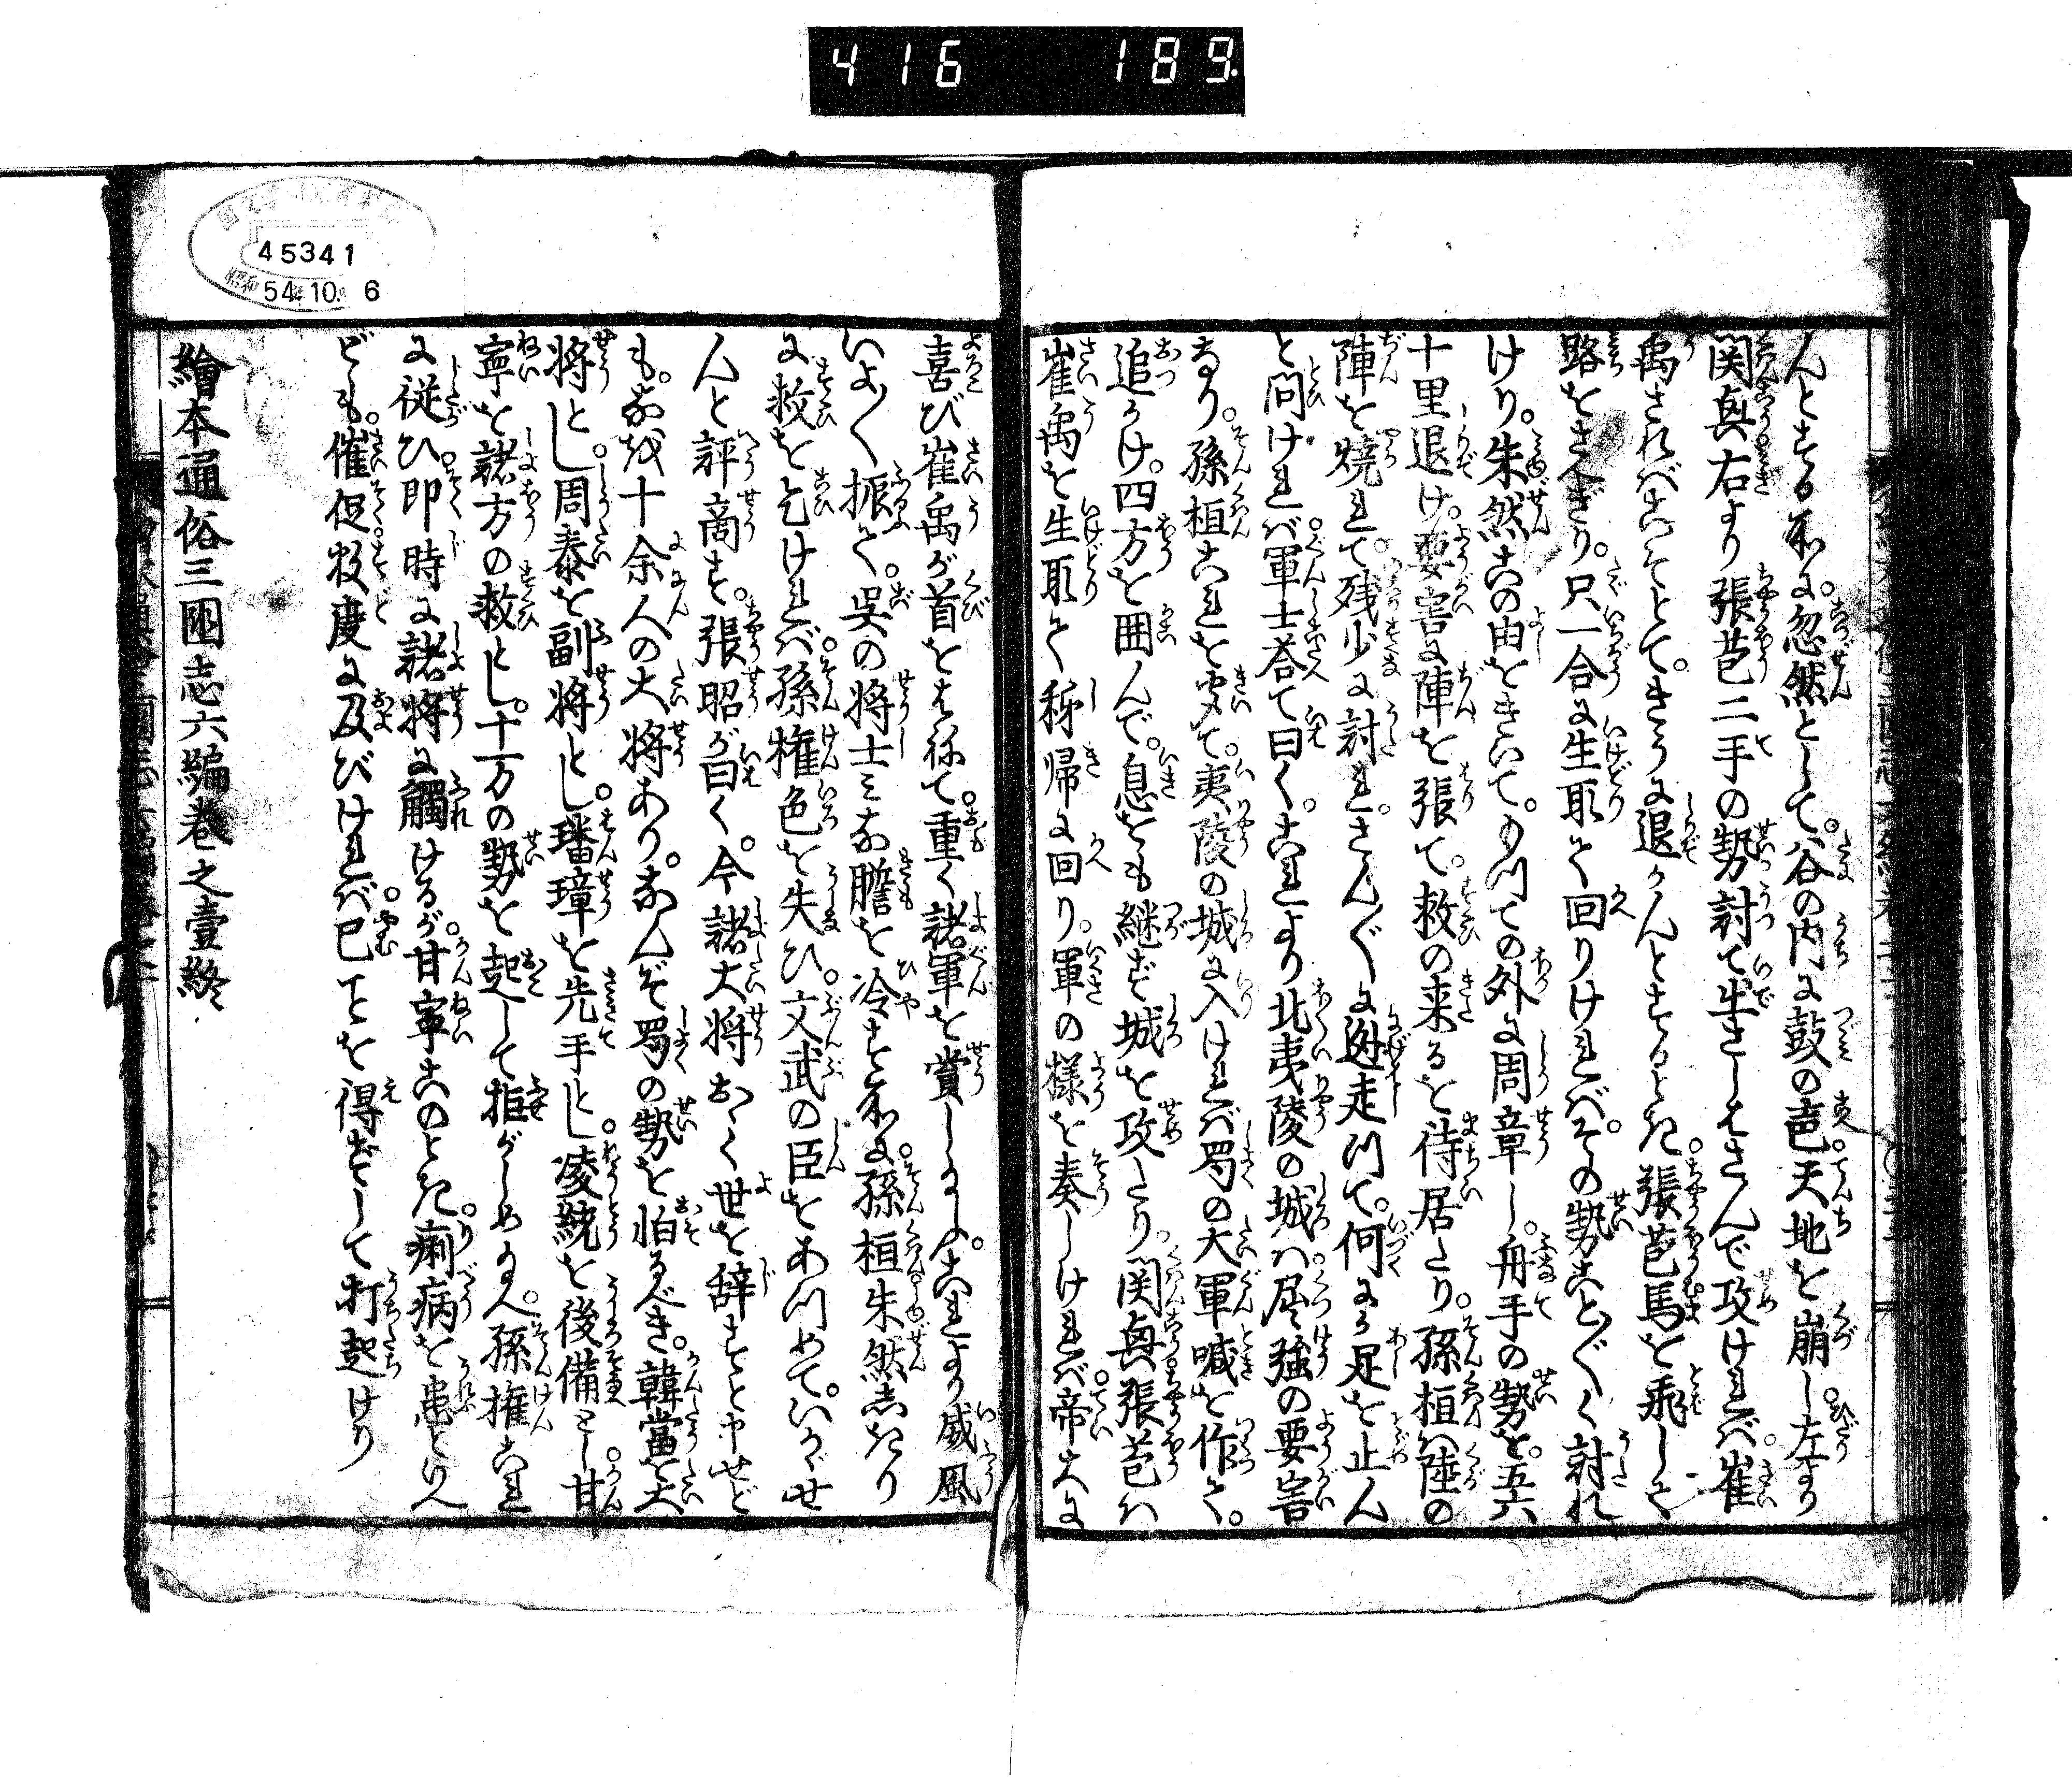 416 189
んとする所に。忽然として。谷の内に鼓の声。天地を崩し。左より
関興右より張苞二手の勢討て出さしはさんで攻ければ。崔
禹さればこそとて。さうに退かんとするとき。張苞馬を飛して
路をさへぎり。只一合に生取て回りければ。その勢ことごとく討れ
けり。朱然此の由をきいて。もつての外に周章し。舟手の勢を。五六
十里退け。要害に陣を張て。救の来るを待居たり。孫桓ハ陸の
陣を焼れて。残少に討れ。さんざんに迯走つて。何にか足を止ん
と問ければ。軍士答て曰く。これより北夷陵の城ハ。屈強の要害
なり。孫桓これを聞て。夷陵の城に入ければ蜀の大軍喊を作て。
追かけ。四方を囲んで。息をも継ず城を攻たり。関興張苞ハ
崔禹を生取て秭帰に回り。軍の様を奏しければ。帝大に
喜び崔禹が首をはねて。重く諸軍を賞しけり。これより威風
いよ〱振て。呉の将士みな膽を冷す所に。孫桓朱然しきり
に救を乞ければ。孫権色を失ひ。文武の臣をあつめて。いかゞせ
んと評商す。張昭が曰く。今諸大将おほく世を辞すと申せど
も。なほ十余人の大将あり。なんぞ蜀の勢を怕るべき。韓當を大
将とし。周泰を副将とし。璠璋を先手とし。凌統を後備とし。甘
寧を諸方の救とし。十万の勢を起して拒がしめ給へ。孫権これ
に従ひ。即時に諸将に觸けるが。甘寧このとき。痢病を患といへ
ども。催促数度に及びければ。已ことを得ずして打起けり
繪本通俗三國志六編巻之壹終
45341
昭和 54.10. 6